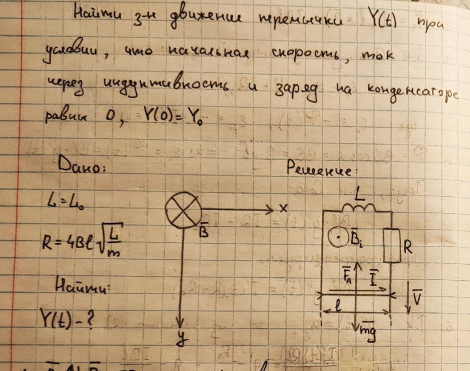 Найти з-н движение перемычки Y(t) при
условии, что начальная скорость, ток
через индуктивность и заряд на конденсаторе
равны 0, Y(0)=Y₀
Дано:
L=L₀
R=4Bl√(L/m)
Найти:
Y(t)-?
B̅
x
y
Решение:
L
B̅ᵢ
R
F̅ₐ
I̅
l
V̅
m̅g̅